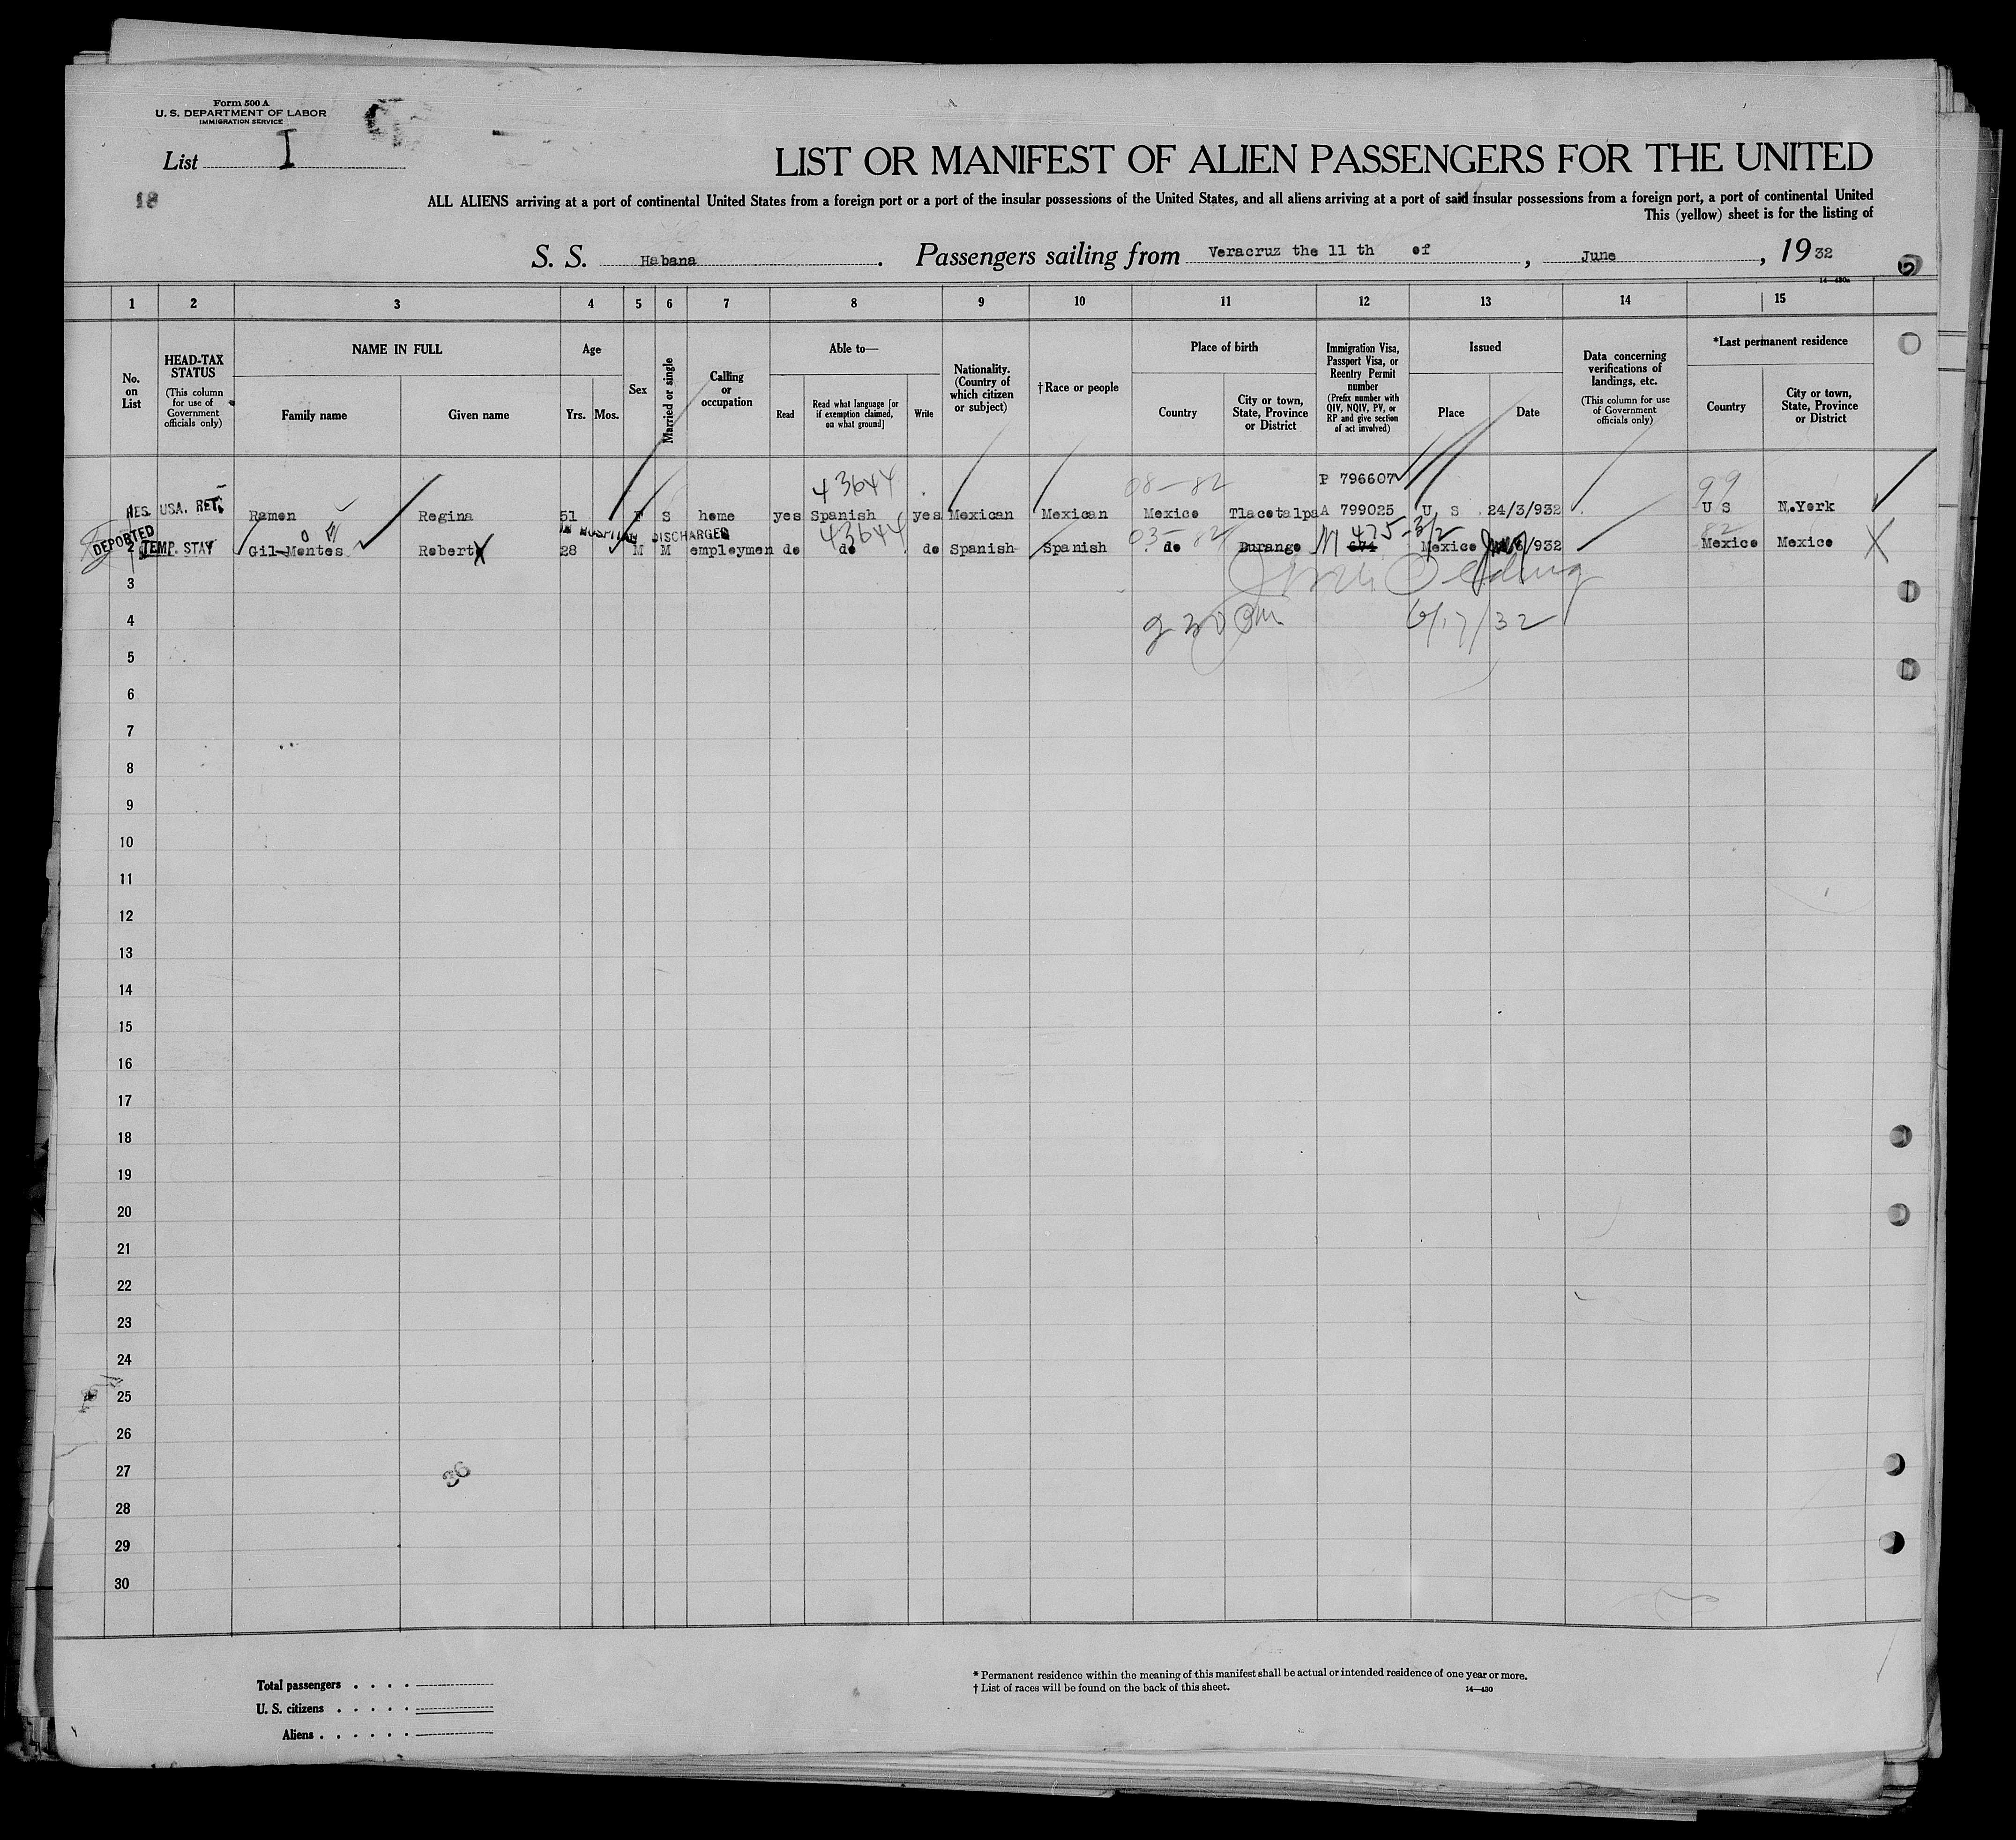 Form 500 A
U. S. DEPARTMENT OF LABOR
IMMIGRATION SERVICE
List I
18
LIST OR MANIFEST OF ALIEN PASSENGERS FOR THE UNITED
ALL ALIENS arriving at a port of continental United States from a foreign port or a port of the insular possessions of the United States, and all aliens arriving at a port of said insular possessions from a foreign port, a port of continental United
This (yellow) sheet is for the listing of
S. S. Habana . Passengers sailing from Veracruz the 11 th of , June , 19 32
5
14-430a
1 2 3 4 5 6 7 8 9 10 11 12 13 14 15
No. on List
HEAD-TAX STATUS (This column for use of Government officials only)
NAME IN FULL
Family name
Given name
Age
Yrs.
Mos.
Sex
Married or single
Calling or occupation
Able to—
Read
Read what language [or if exemption claimed, on what ground]
Write
Nationality. (Country of which citizen or subject)
†Race or people
Place of birth
Country
City or town, State, Province or District
Immigration Visa, Passport Visa, or Reentry Permit number (Prefix number with QIV, NQIV, PV, or RP and give section of act involved)
Issued
Place
Date
Data concerning verifications of landings, etc. (This column for use of Government officials only)
*Last permanent residence
Country
City or town, State, Province or District
43644 08-82 P 796607 99
1 RES. USA. RET. Ramon Regina 51 F S home yes Spanish yes Mexican Mexican Mexico Tlacotalpa A 799025 U S 24/3/932 U S N.York
DEPORTED IN HOSPITAL DISCHARGED 43644 03-82 475-3/2 82
2 TEMP. STAY Gil-Montes Robert 28 M M employmen do do do Spanish Spanish do Durango 674 Mexico /932 Mexico Mexico
3
4 230 PM 6/17/32
5
6
7
8
9
10
11
12
13
14
15
16
17
18
19
20
21
22
23
24
25
26
27 36
28
29
30
Total passengers . . . .
U. S. citizens . . . . .
Aliens . . . . . .
* Permanent residence within the meaning of this manifest shall be actual or intended residence of one year or more.
† List of races will be found on the back of this sheet.
14—430